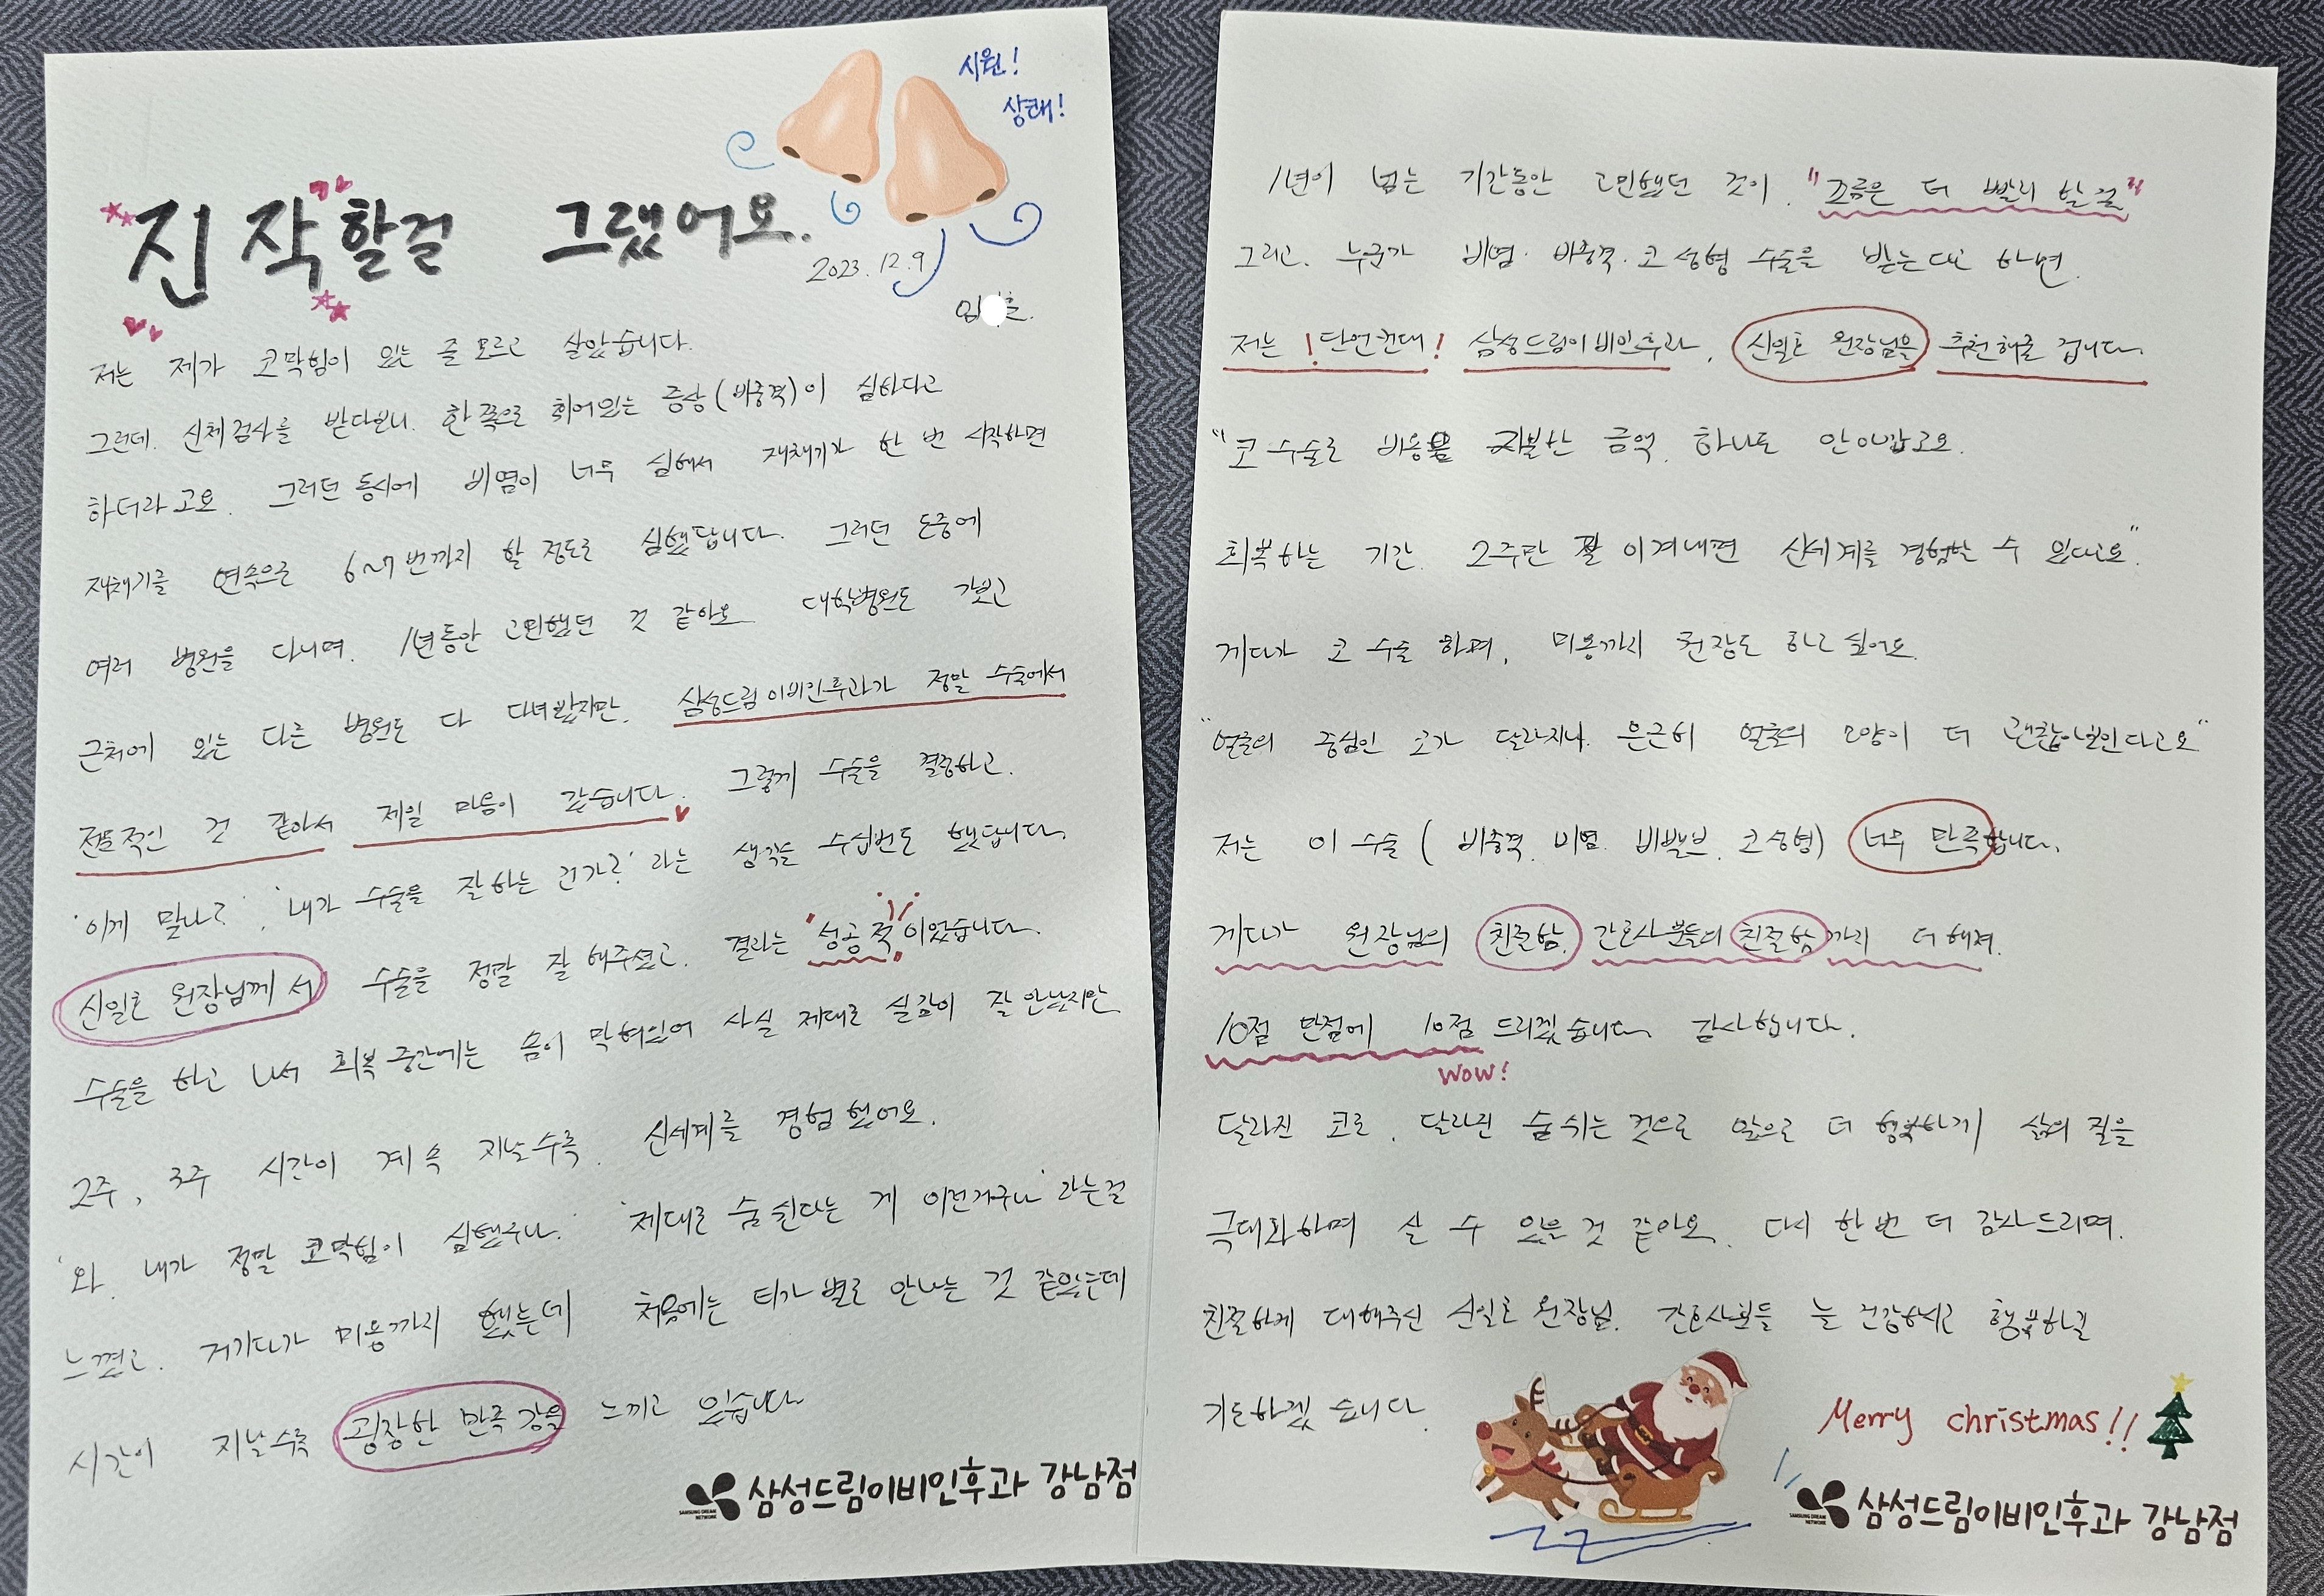 시원!
상태!
진작할걸 그랬어요.
2023. 12. 9
저는 제가 코막힘이 있는 줄 모르고 살았습니다.
그런데. 신체검사를 받다보니. 한쪽으로 휘어있는 증상(비중격)이 심하다고
하더라고요. 그러던 동시에 비염이 너무 심해서 재채기가 한 번 시작하면
재채기를 연속으로 6~7번까지 할 정도로 심했답니다. 그러던 도중에
여러 병원을 다니며. 1년동안 고민했던 것 같아요. 대학병원도 가보고
근처에 있는 다른 병원도 다 다녀봤지만. 삼성드림이비인후과가 정말 수술에서
전문적인 것 같아서 제일 마음이 갔습니다. 그렇게 수술을 결정하고.
'이게 맞나?', '내가 수술을 잘하는 건가?' 라는 생각을 수십번도 했답니다.
신일호 원장님께서 수술을 정말 잘 해주셨고. 결과는 '성공적'이었습니다.
수술을 하고 나서 회복 중간에는 솜이 막혀있어 사실 제대로 실감이 잘 안났지만
2주, 3주 시간이 계속 지날수록. 신세계를 경험했어요.
'와. 내가 정말 코막힘이 심했구나.' '제대로 숨쉰다는 게 이런거구나' 라는걸
느꼈고. 거기다가 미용까지 했는데 처음에는 티가 별로 안나는 것 같았는데
시간이 지날수록 굉장한 만족감을 느끼고 있습니다
SAMSUNG DREAM NETWORK
삼성드림이비인후과 강남점
1년이 넘는 기간동안 고민했던 것이. "조금은 더 빨리 할걸"
그리고. 누군가 비염. 비중격. 코 성형 수술을 받는다고 하면.
저는 !단언컨대! 삼성드림이비인후과, 신일호 원장님을 추천해줄 겁니다.
"코 수술로 비용을 지불한 금액, 하나도 안아깝고요.
회복하는 기간. 2주만 잘 이겨내면 신세계를 경험할 수 있다고요".
게다가 코 수술 하며, 미용까지 권장도 하고 싶어요.
"얼굴의 중심인 코가 달라지니. 은근히 얼굴의 모양이 더 괜찮아보인다고요"
저는 이 수술 ( 비중격. 비염. 비밸브. 코성형) 너무 만족합니다.
게다가 원장님의 친절함. 간호사분들의 친절함까지 더해져.
10점 만점에 10점 드리겠습니다. 감사합니다.
WOW!
달라진 코로, 달라진 숨쉬는 것으로 앞으로 더 행복하게 삶의 질을
극대화하며 살 수 있을 것 같아요. 다시 한번 더 감사드리며.
친절하게 대해주신 신일호 원장님. 간호사분들 늘 건강하시고 행복하길
기도하겠습니다.
Merry christmas!!
SAMSUNG DREAM NETWORK
삼성드림이비인후과 강남점